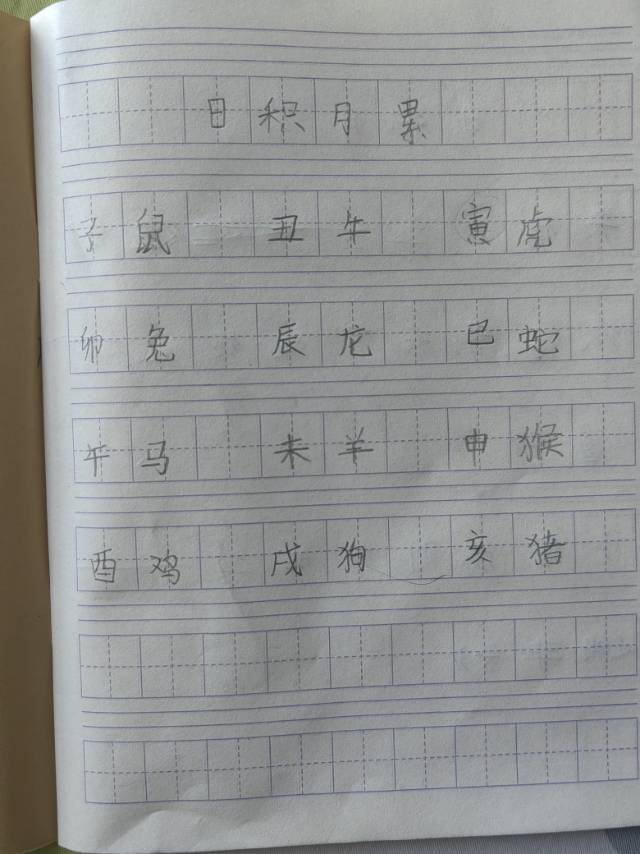 日积月累
子鼠 丑牛 寅虎
卯兔 辰龙 巳蛇
午马 未羊 申猴
酉鸡 戌狗 亥猪